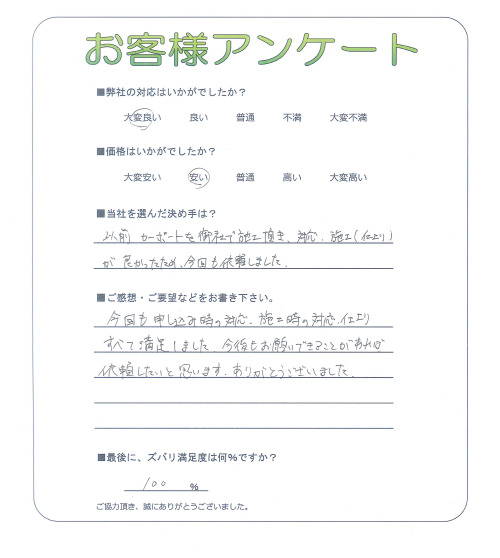 お客様アンケート
■弊社の対応はいかがでしたか？
大変良い 良い 普通 不満 大変不満
■価格はいかがでしたか？
大変安い 安い 普通 高い 大変高い
■当社を選んだ決め手は？
以前 カーポートを御社で施工頂き、対応、施工(仕上り)
が良かったため、今回も依頼しました。
■ご感想・ご要望などをお書き下さい。
今回も申し込み時の対応、施工時の対応、仕上り
すべて満足しました。今後もお願いできることがあれば
依頼したいと思います。ありがとうございました。
■最後に、ズバリ満足度は何%ですか？
100 %
ご協力頂き、誠にありがとうございました。